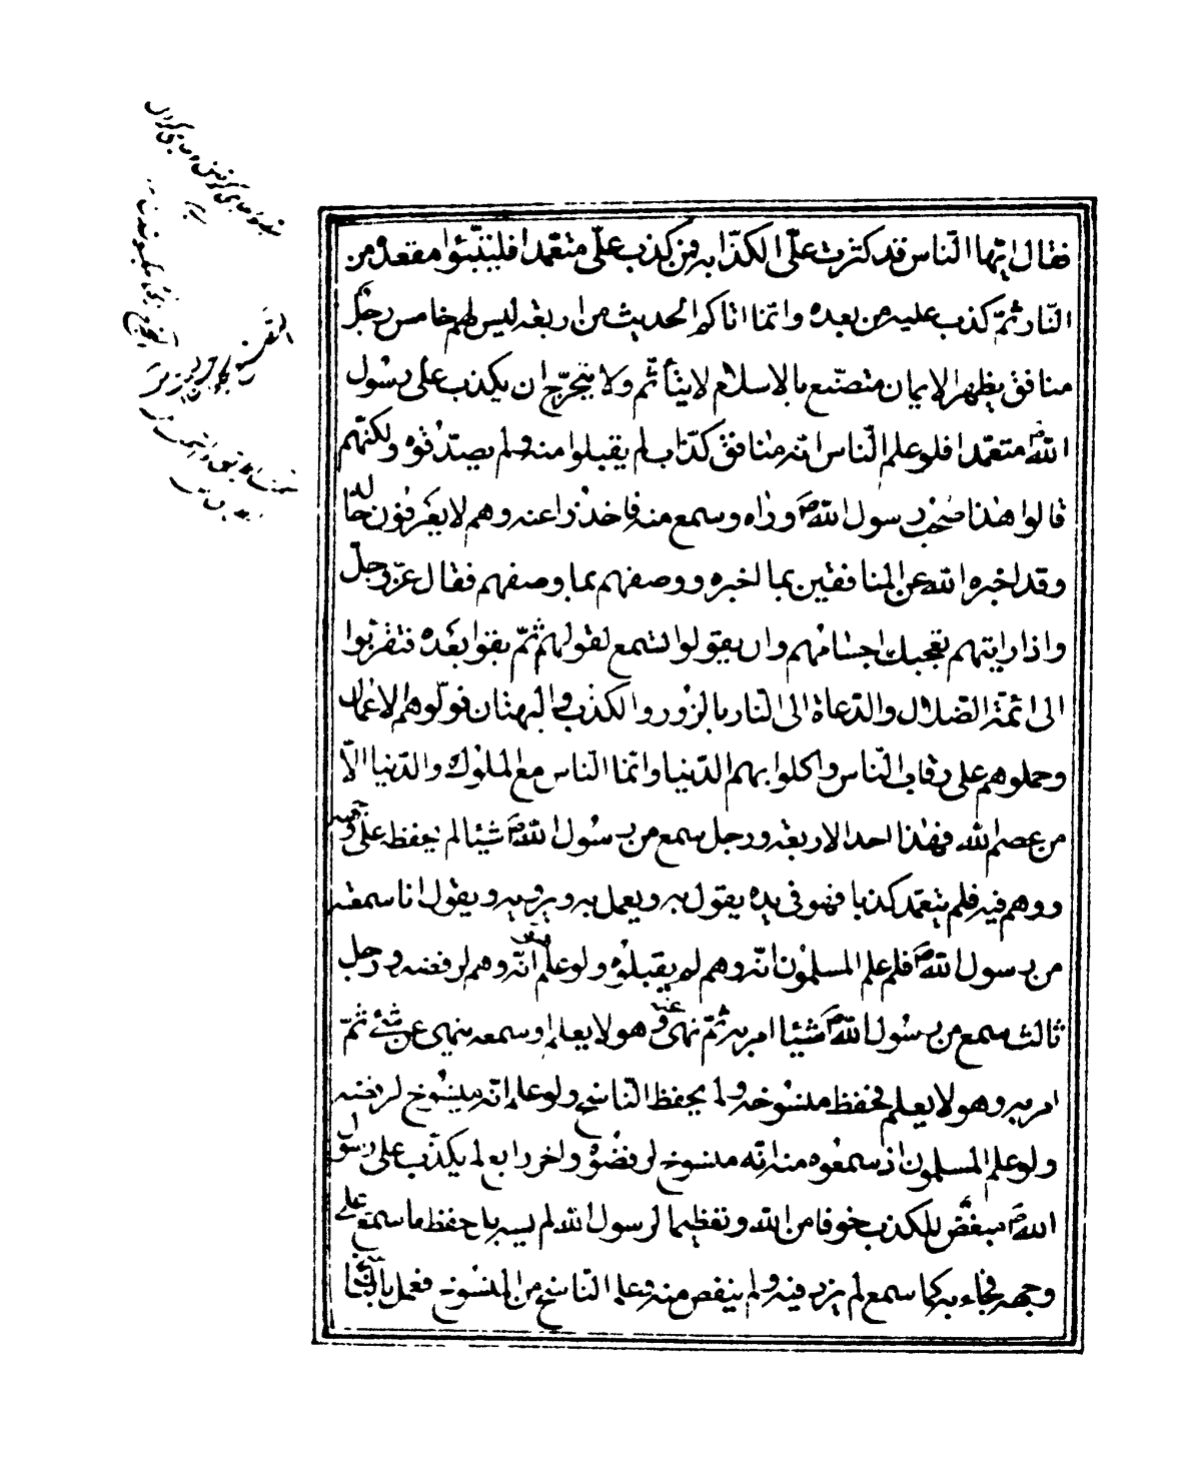 فقال ايّها النّاس قد كثرت علىّ الكذّابه فمن كذب علىّ متعمّدا فليتبّئوا مقعده من
النّار ثمّ كذب عليه من بعده وانّما اتاكم الحديث من اربعة ليس لهم خامس رجل
منافق يظهر الايمان متصنّع بالاسلام لا يتأثّم ولا يتحرّج ان يكذب على رسول
اللهص متعمّدا فلو علم النّاس انّه منافق كذّاب لم يقبلوا منه ولم يصدّقوه ولكنّهم
قالوا هذا صحب رسول اللهص وراه وسمع منه فاخذوا عنه وهم لا يعرفون حاله
وقد اخبره الله عن المنافقين بما اخبره ووصفهم بما وصفهم فقال عزّ وجلّ
واذا رايتهم تعجبك اجسامهم وان يقولوا تسمع لقولهم ثمّ بقوا بعده فتقربّوا
الى ائمّة الضلال والدّعاة الى النّار بالزور والكذب والبهتان فولّوهم الاعمال
وحملوهم على رقاب النّاس واكلوا بهم الدّنيا وانّما النّاس مع الملوك والدّنيا الّا
من عصم الله فهذا احد الاربعة ورجل سمع من رسول اللهص شيئا لم يحفظه على وجهه
ووهم فيه فلم يتعمّد كذبا فهو فى يده يقول به ويعمل به ويرويه ويقول انا سمعته
من رسول اللهص فلم علم المسلمون انّه وهم لم يقبلوه ولو علم انّه وهم لرفضه ورجل
ثالث سمع من رسول اللهص شيئا امر به ثمّ نهى عنه وهو لا يعلم او سمعه ينهى عن شئ ثمّ
امر به وهو لا يعلم فحفظ منسوخه ولم يحفظ النّاسخ ولو علم انّه منسوخ لرفضه
ولو علم المسلمون اذ سمعوه منه انّه منسوخ لرفضوه واخر رابع لم يكذب على رسول
اللهص مبغض للكذب خوفا من الله وتعظيما لرسول الله لم يسه بل حفظ ما سمع على
وجهه فجاء به كما سمع لم يزد فيه ولم ينقص منه وعلم النّاسخ من المنسوخ فعمل بالنّاسخ